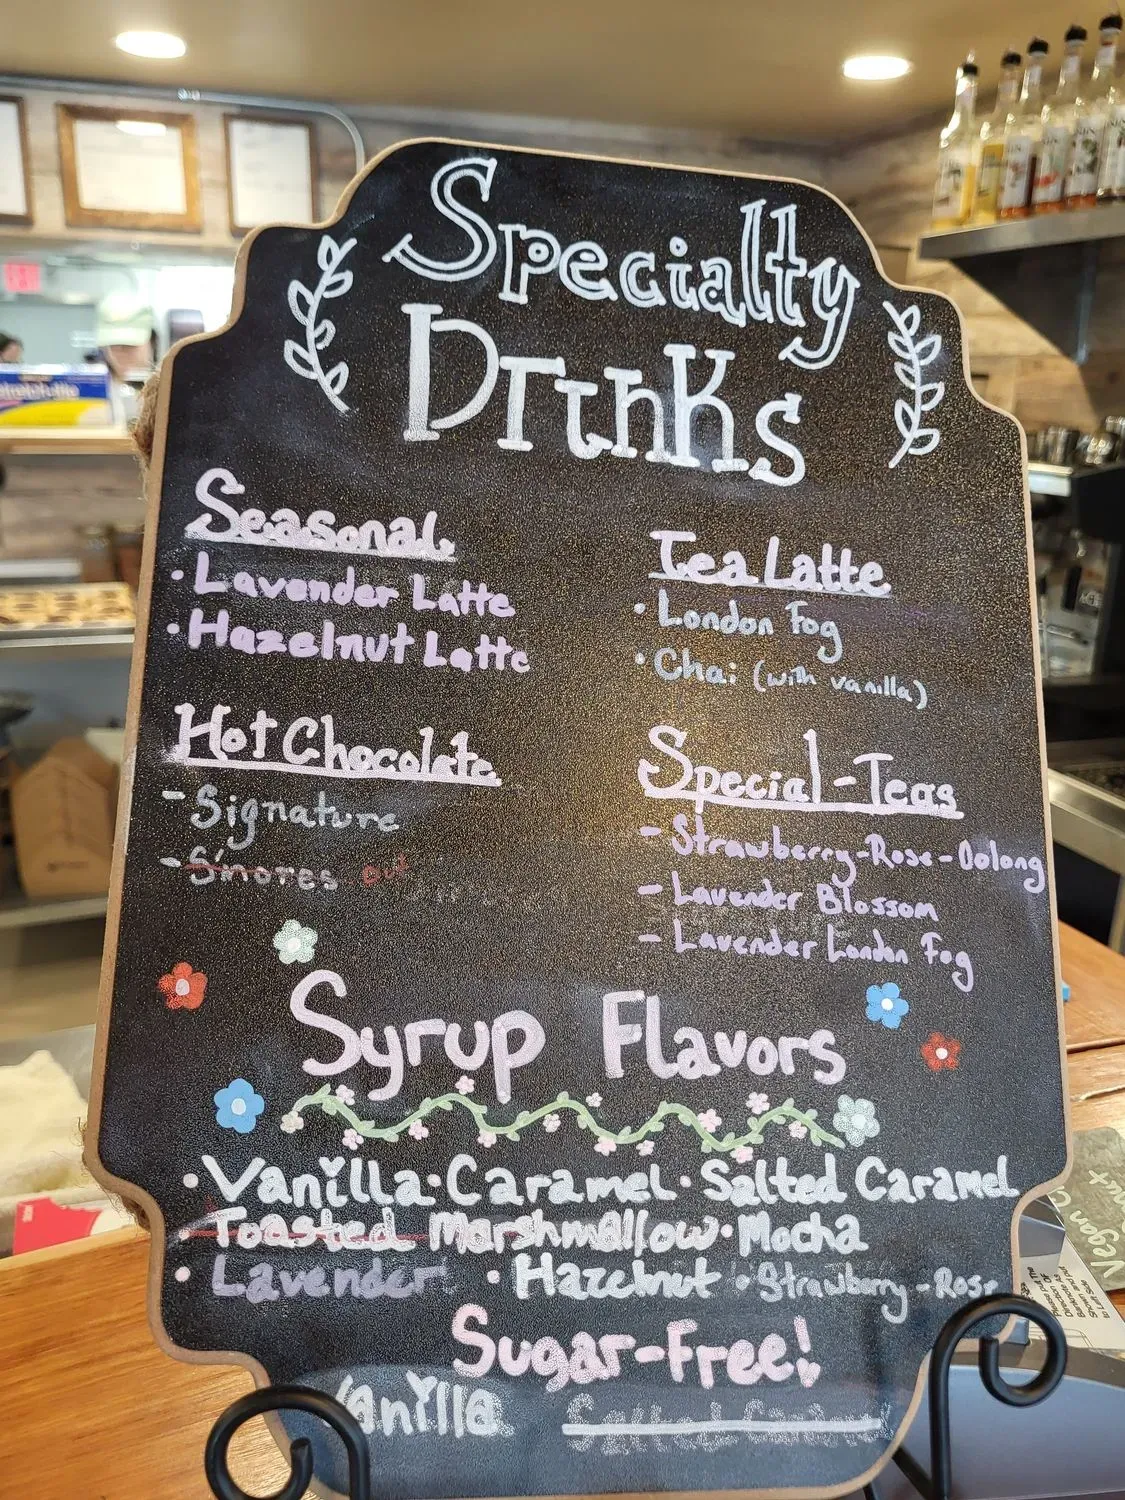 Specialty
Drinks
Seasonal
• Lavender Latte
• Hazelnut Latte
Hot Chocolate
- Signature
- S'mores out
Tea Latte
• London Fog
• Chai (with vanilla)
Special-Teas
- Strawberry-Rose-Oolong
- Lavender Blossom
- Lavender London Fog
Syrup Flavors
• Vanilla • Caramel • Salted Caramel
• Toasted Marshmallow • Mocha
• Lavender • Hazelnut • Strawberry-Rose
Sugar-Free!
Vanilla Salted Caramel
Vegan